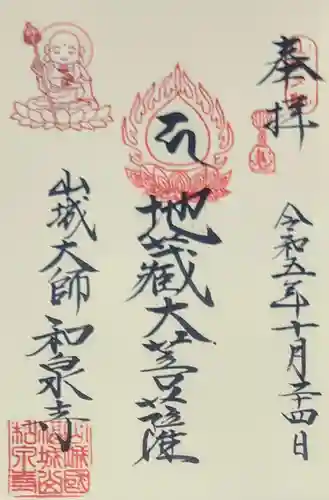 奉拝
令和五年十月二十四日
地蔵大菩薩
山城大師
和泉寺